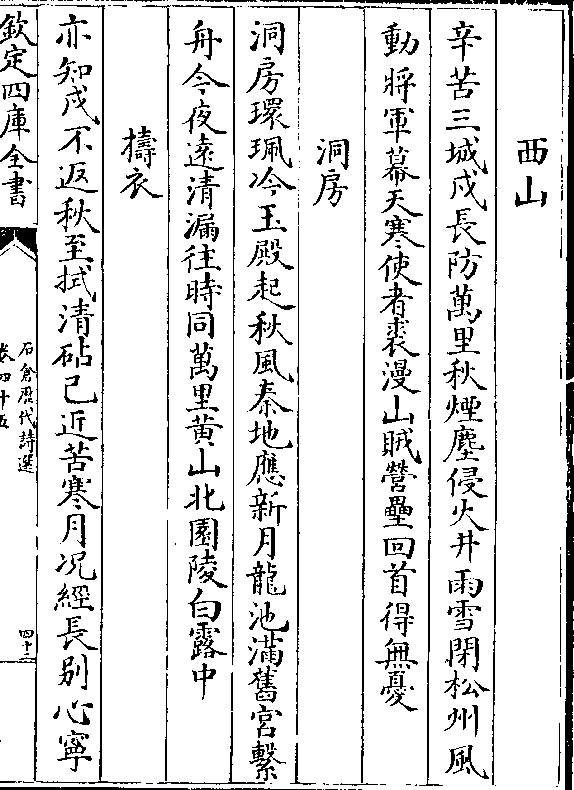 西山
辛苦三城戍長防萬里秋煙塵侵火井雨雪閉松州風
動將軍幕天寒使者裘漫山賊營壘回首得無憂
洞房
洞房環珮冷玉殿起秋風秦地應新月龍池滿舊宮繫
舟今夜遠清漏往時同萬里黄山北園陵白露中
擣衣
亦知戍不返秋至拭清砧已近苦寒月况經長别心寧
欽定四庫全書
石倉歷代詩選
卷四十五
四十二